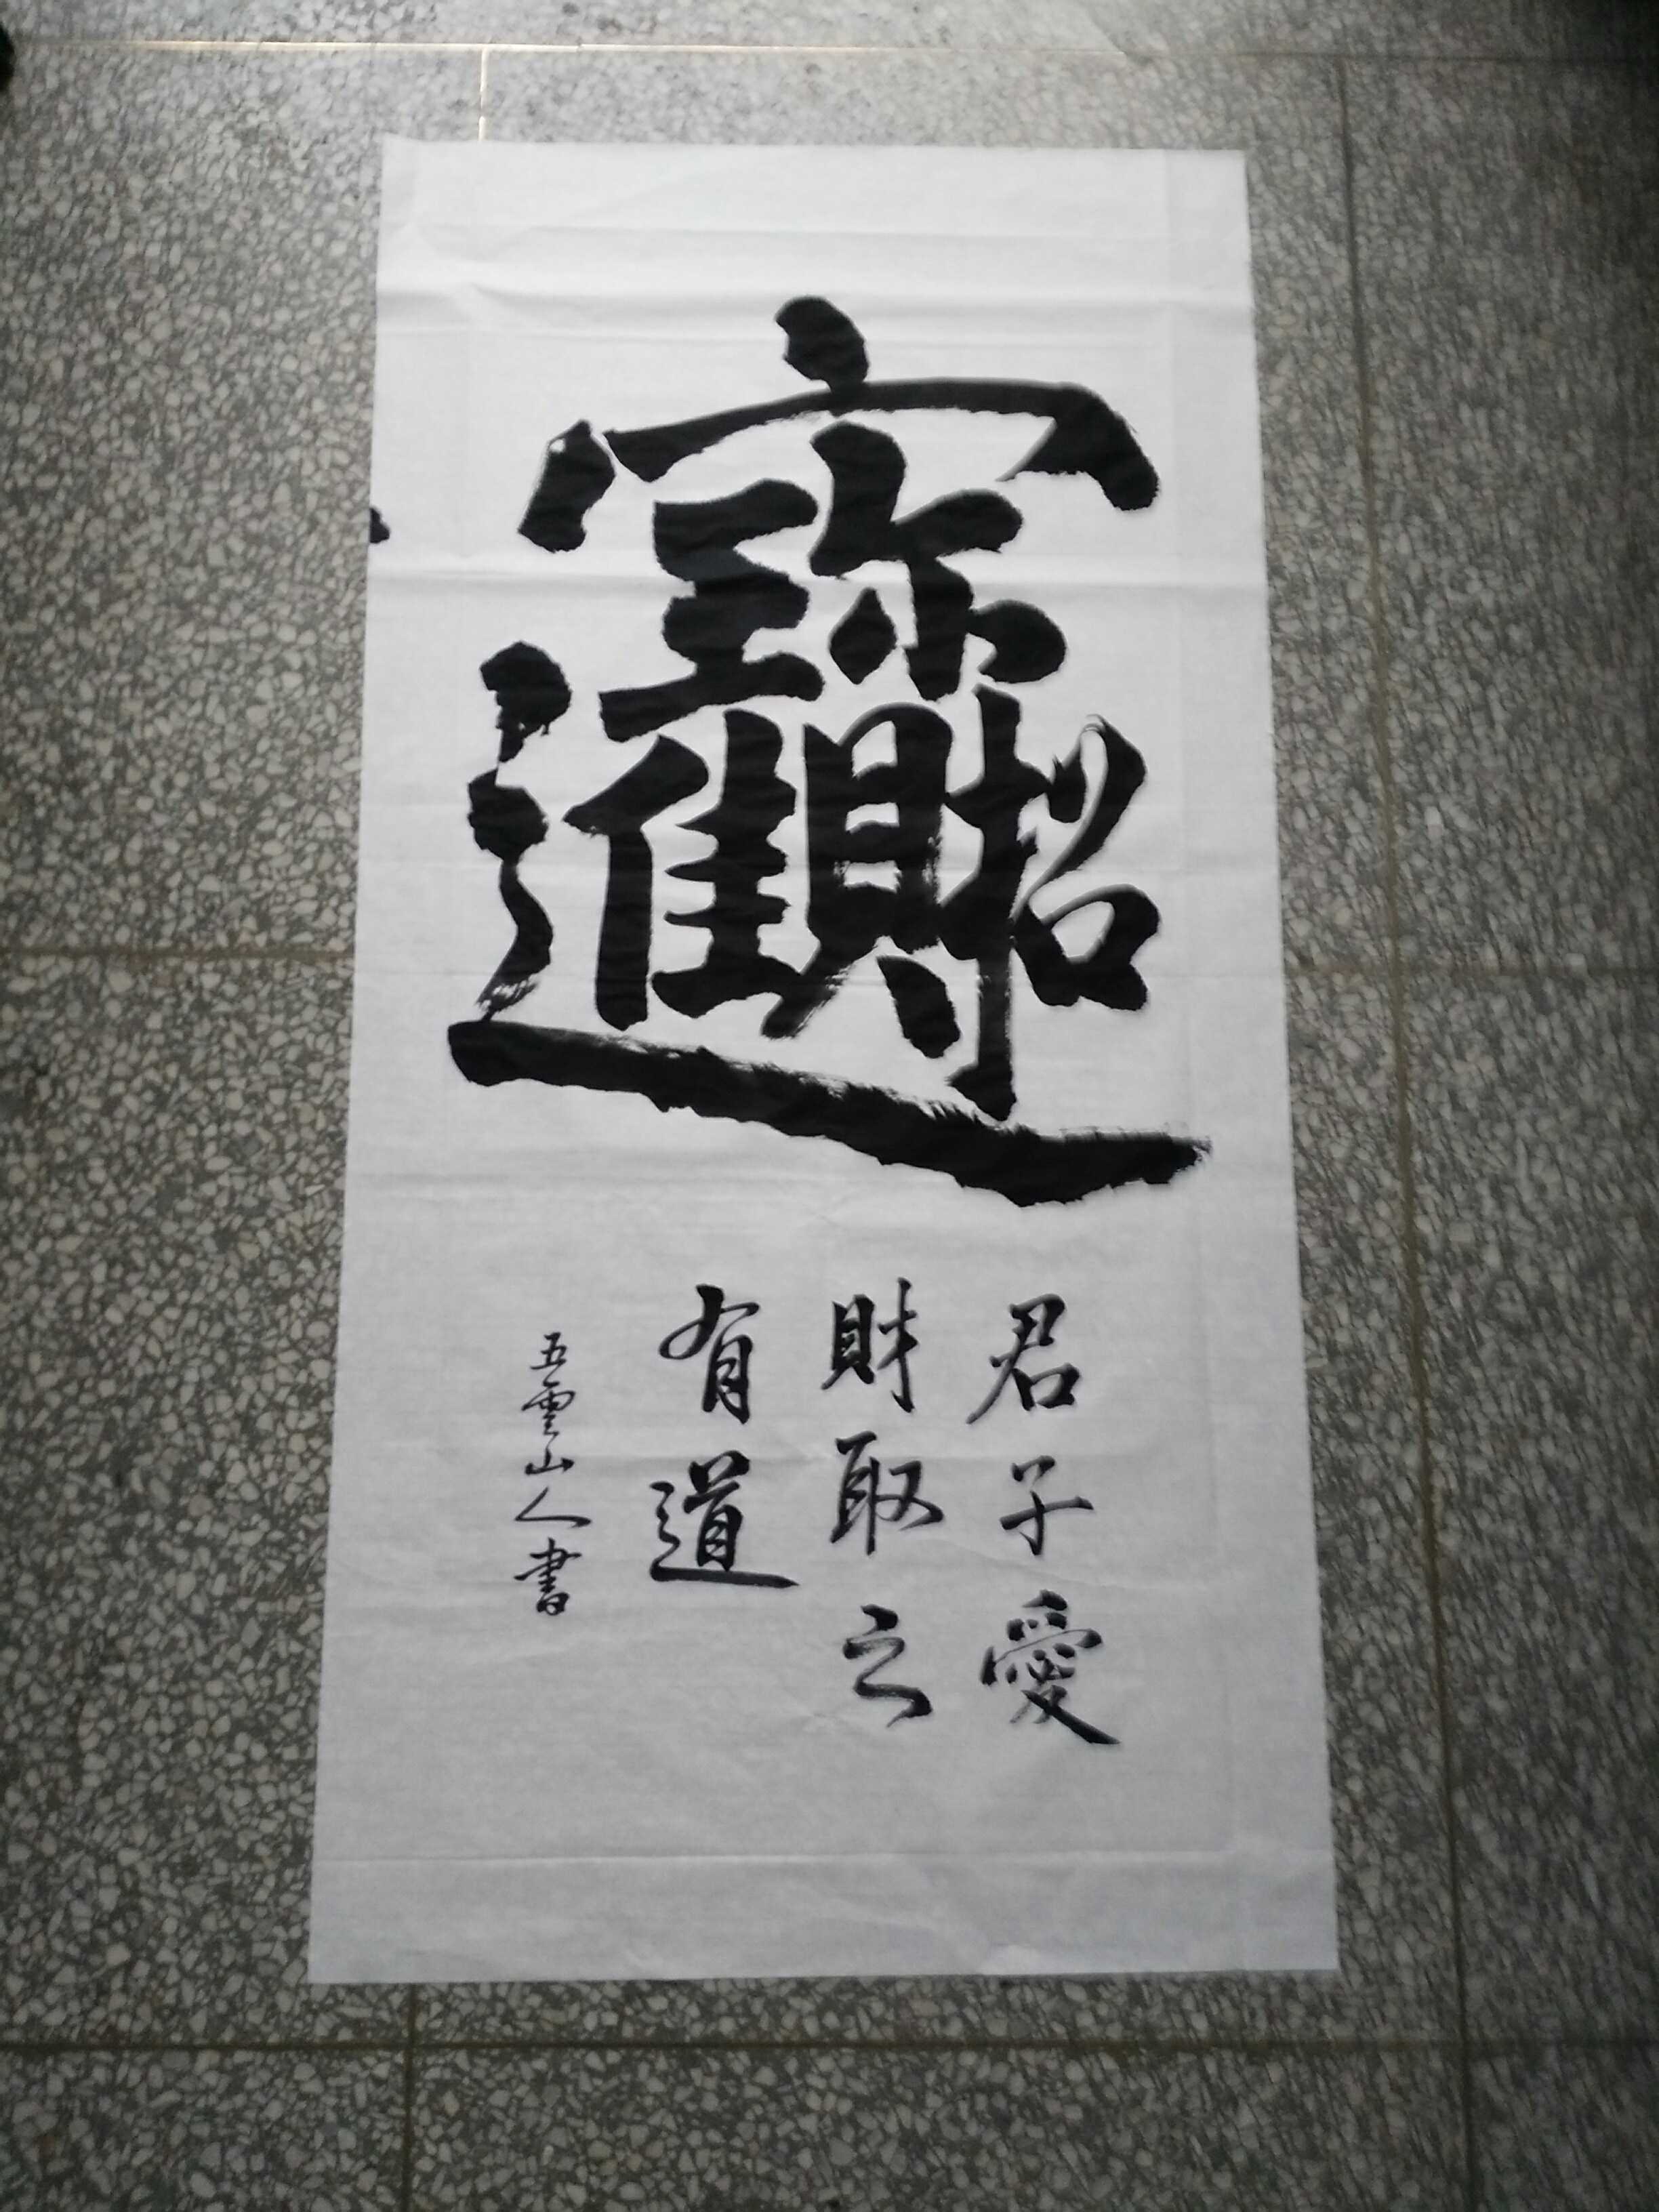 招財進寶
君子愛
財取之
有道
五雲山人書